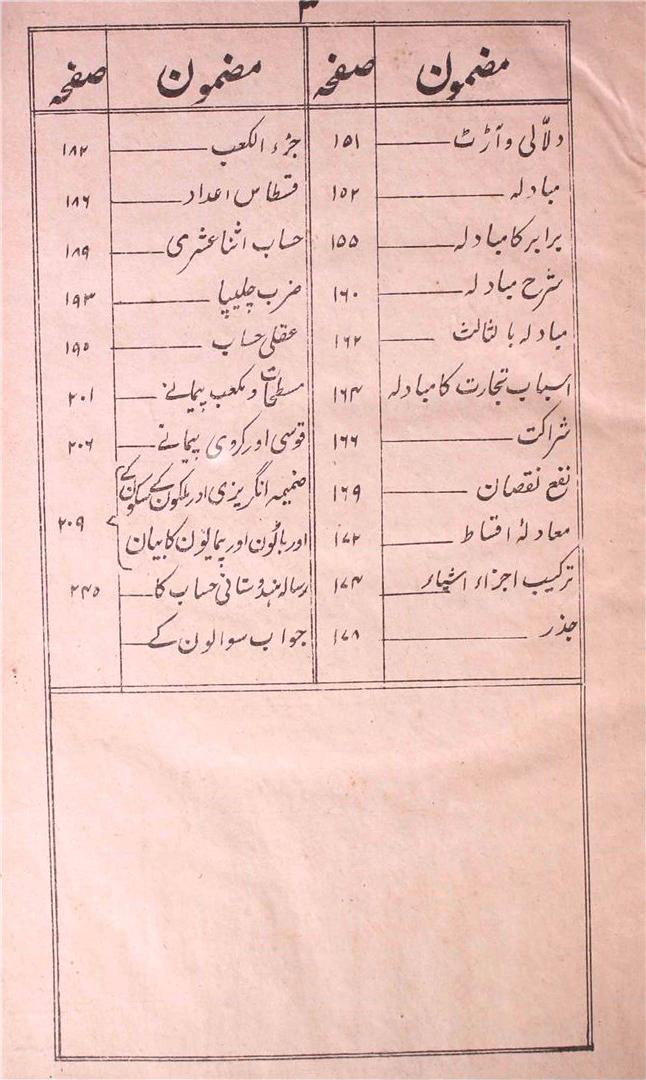 ۳
مضمون صفحہ
دلّالی و آڑٹ ۱۵۱
مبادلہ ۱۵۲
برابر کا مبادلہ ۱۵۵
شرح مبادلہ ۱۶۰
مبادلہ بالثالث ۱۶۲
اسباب تجارت کا مبادلہ ۱۶۴
شراکت ۱۶۶
نفع نقصان ۱۶۹
معادلۂ اقساط ۱۷۲
ترکیب اجزاء اشیاء ۱۷۴
جذر ۱۷۸
مضمون صفحہ
جزء الکعب ۱۸۲
قسطاس اعداد ۱۸۶
حساب اثنا عشری ۱۸۹
ضرب چلیپا ۱۹۳
عقلی حساب ۱۹۵
مسطحات و مکعب پیمانے ۲۰۱
قوسی اور کروی پیمانے ۲۰۶
ضمیمہ انگریزی اور ملکون کے سکون کے
اور باٹون اور پیمانون کا بیان ۲۰۹
رسالہ ہندوستانی حساب کا ۲۴۵
جواب سوالون کے